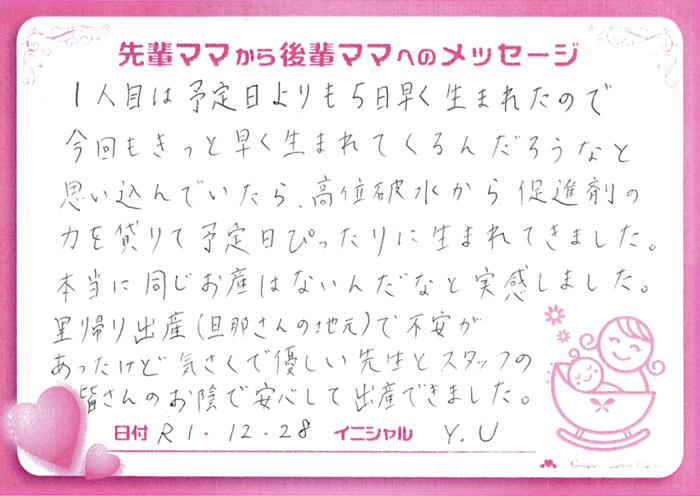 先輩ママから後輩ママへのメッセージ
1人目は予定日よりも5日早く生まれたので
今回もきっと早く生まれてくるんだろうなと
思い込んでいたら、高位破水から促進剤の
力を貸りて予定日ぴったりに生まれてきました。
本当に同じお産はないんだなと実感しました。
里帰り出産(旦那さんの地元)で不安が
あったけど気さくで優しい先生とスタッフの
皆さんのお陰で安心して出産できました。
日付 R1.12.28 イニシャル Y.U